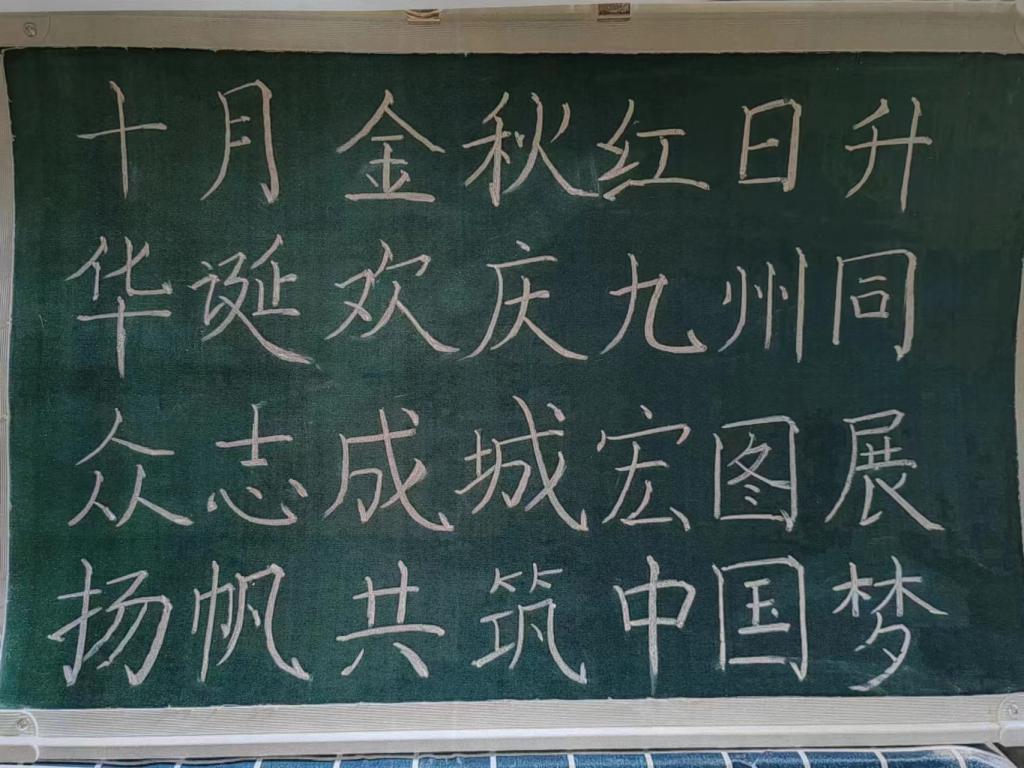 十月金秋红日升
华诞欢庆九州同
众志成城宏图展
扬帆共筑中国梦